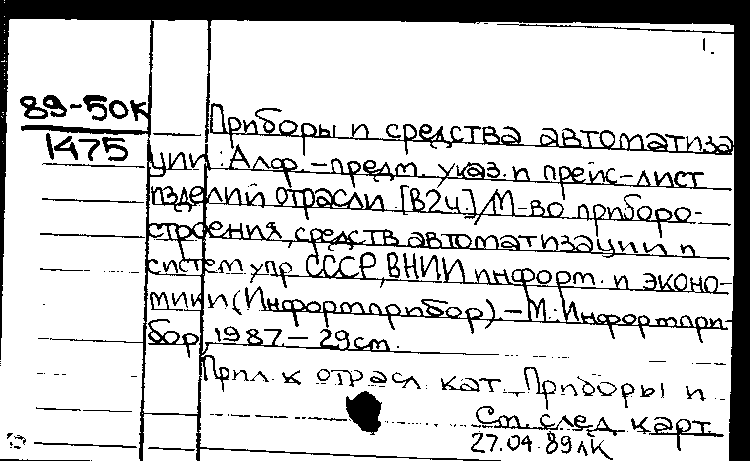 1.
89-50К
1475
Приборы и средства автоматиза
ции: Алф.-предм. указ. и прейс-лист
изделий отрасли [В 2ч.] / М-во приборо-
строения, средств автоматизации и
систем упр СССР, ВНИИ информ. и эконо-
мики (Информприбор). - М.: Информпри-
бор, 1987. - 29см.
Прил. к отрасл. кат. Приборы и
См. след. карт
27.04.89 лк